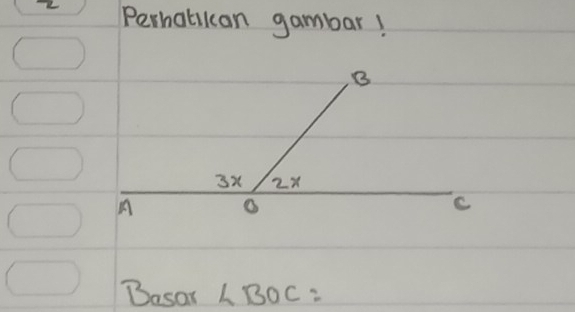 2
Perhatikan gambar!
B
3x 2x
A O C
Besar ∠BOC =